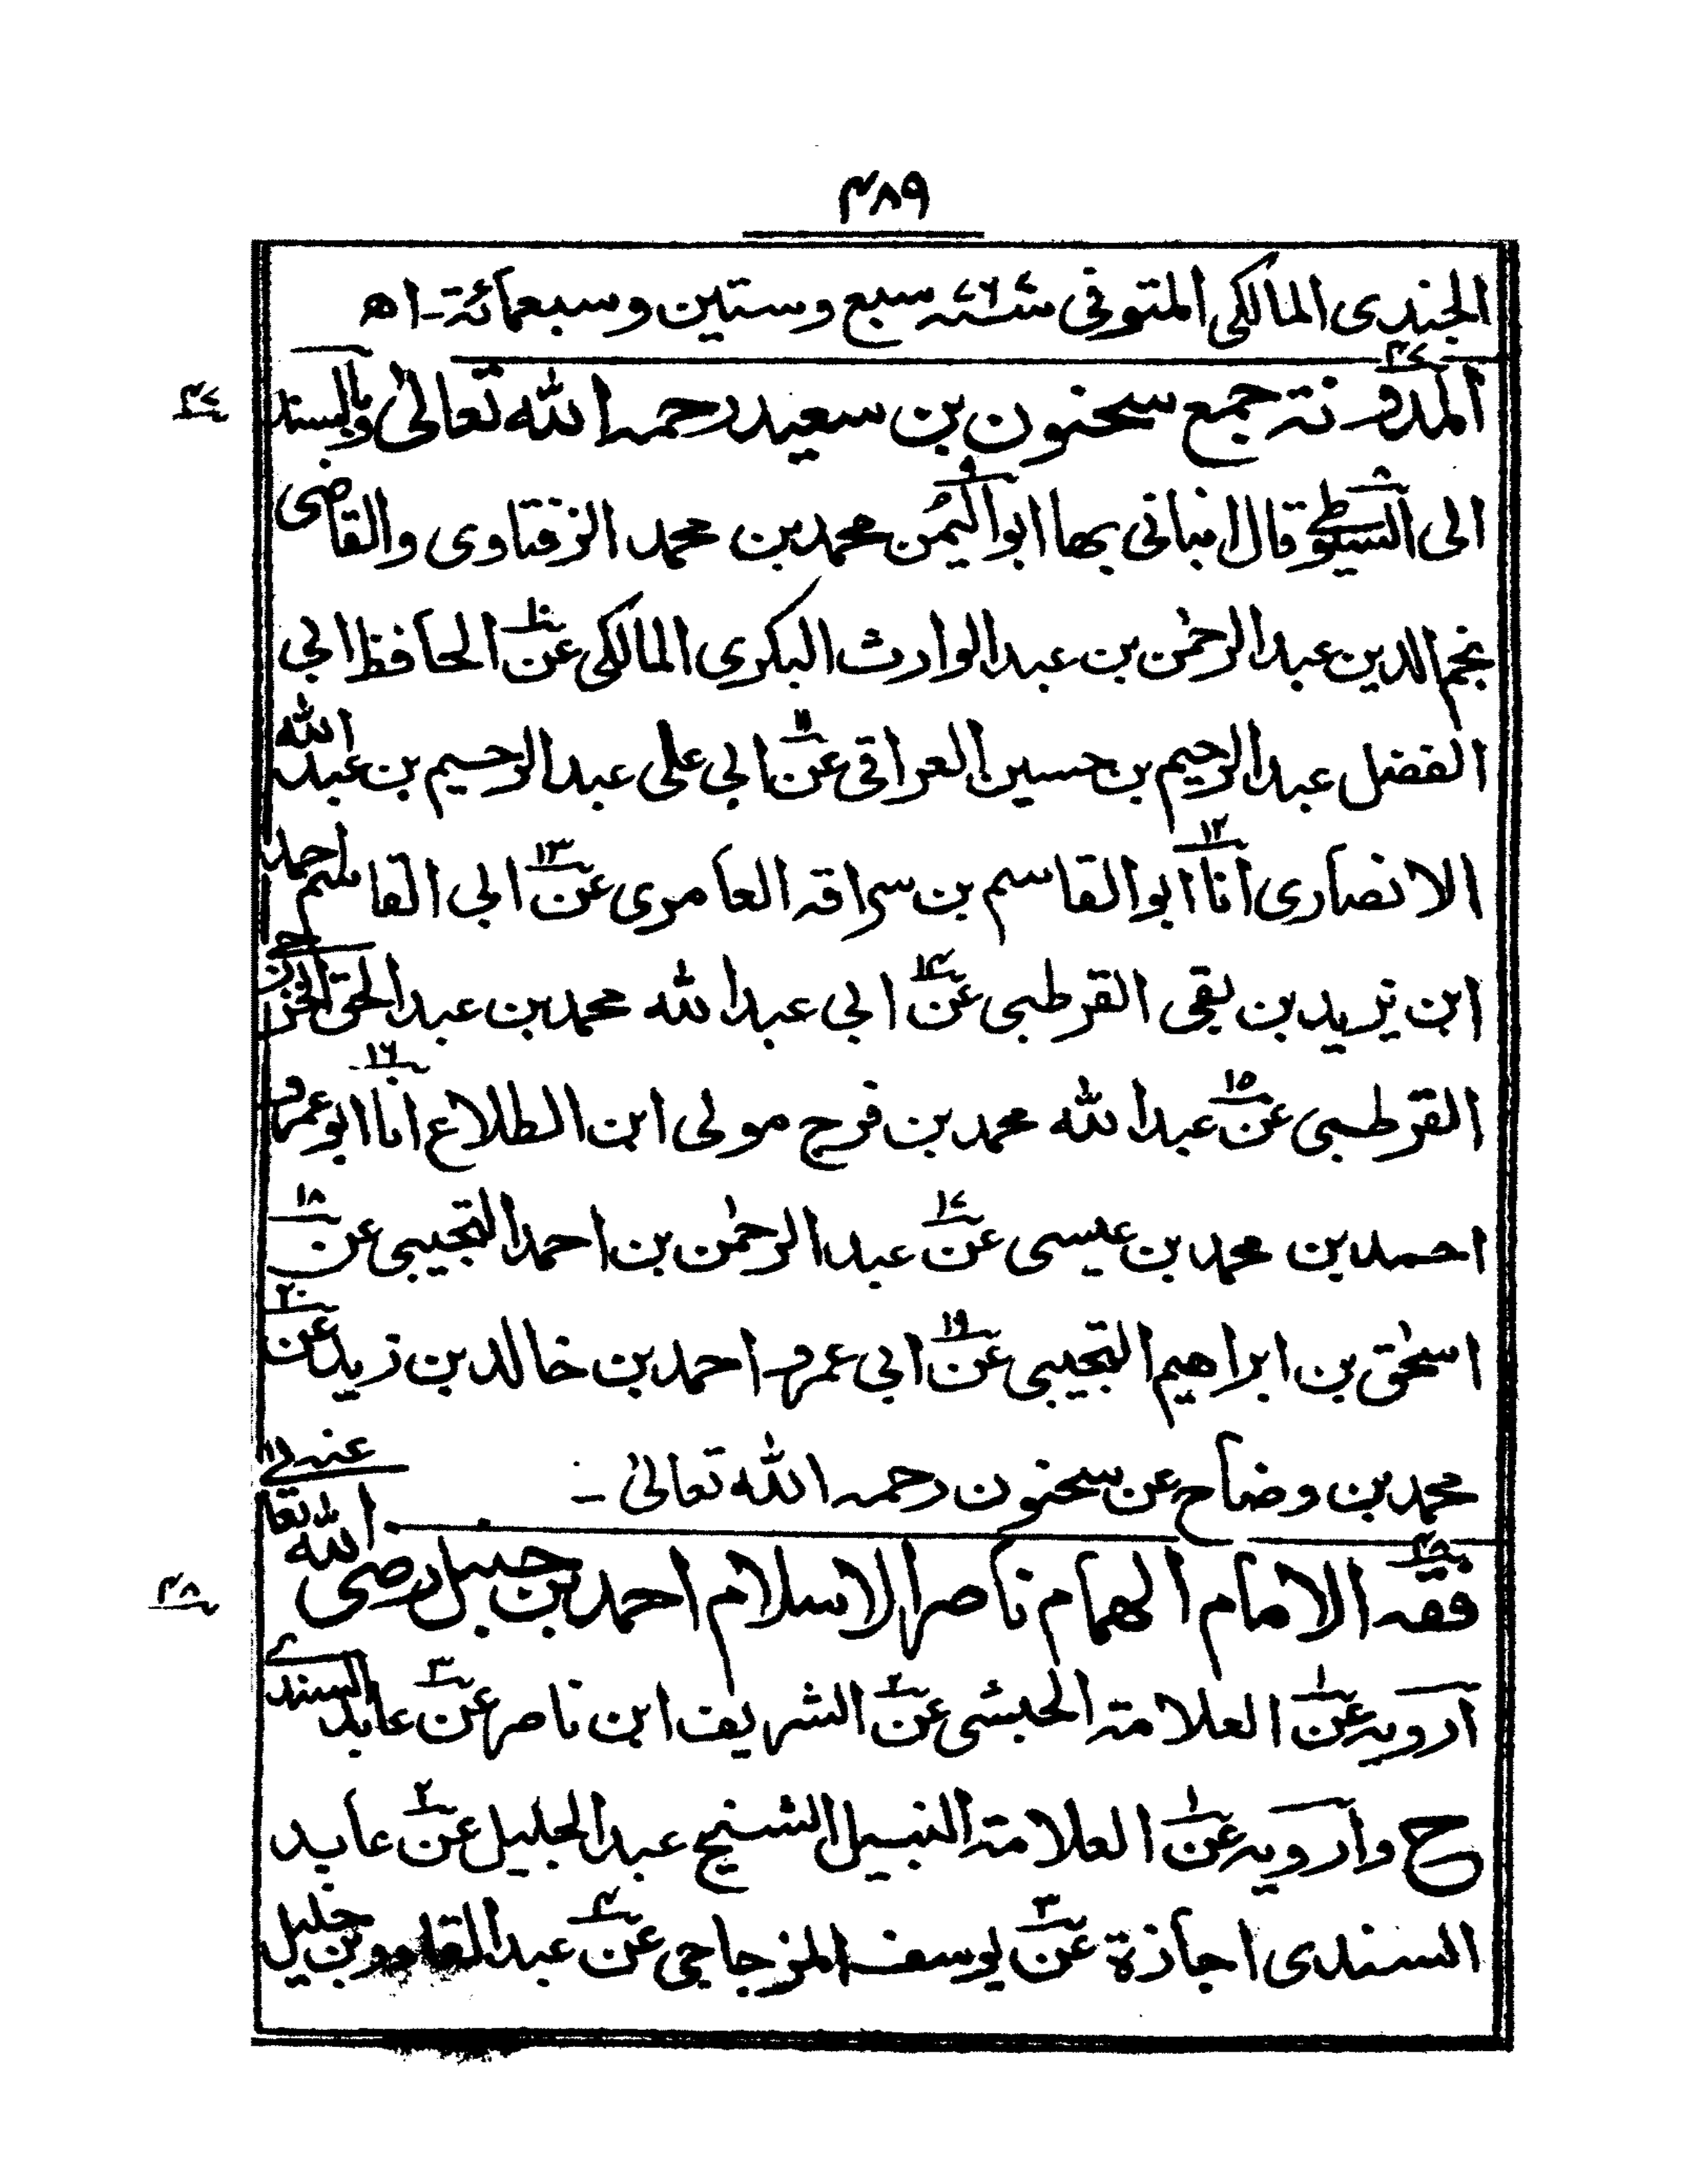 ٤٨٩
الجندى المالكى المتوفى ٧٦٧سنه سبع وستين وسبعمائة ـ اھ
٤٧
المدونة جمع سحنون بن سعيد رحمه الله تعالىٰ وبالسند
٤٧
الى السيوطى٨ قال انبانى بها ابو اليُمن٩ محمد بن محمد الزفتاوى والقاضى
نجم الدين عبد الرحمٰن بن عبد الوارث البكرى المالكى عن١٠ الحافظ ابي
الفضل عبد الرحيم بن حسين العراقى عن١١ ابي على عبد الرحيم بن عبد الله
الانصارى انا١٢ ابو القاسم بن سراقه العامرى عن١٣ ابي القاسم احمد
ابن يزيد بن بقى القرطبى عن١٤ ابي عبد الله محمد بن عبد الحق الخزرجى
القرطبى عن١٥ عبد الله محمد بن فرج مولى ابن الطلاع انا١٦ ابو عمرو
احمد بن محمد بن عيسى عن١٧ عبد الرحمٰن بن احمد التجيبى عن١٨
اسحٰق بن ابراهيم التجيبى عن١٩ ابي عمرو احمد بن خالد بن زيد عن٢٠
محمد بن وضاح عن سحنون رحمه الله تعالىٰ ـ
٤٨
فقه الامام الهمام ناصر الاسلام احمد بن حنبل رضى الله تعالى عنه
٤٨
آرويه عن١ العلامة الحبشى عن٢ الشريف ابن ناصر عن٣ عابد السندے
ح وآرويه عن١ العلامة النبيل الشيخ عبد الجليل عن٢ عابد
السندى اجازة عن٣ يوسف المزجاجى عن٤ عبد القادر بن خليل